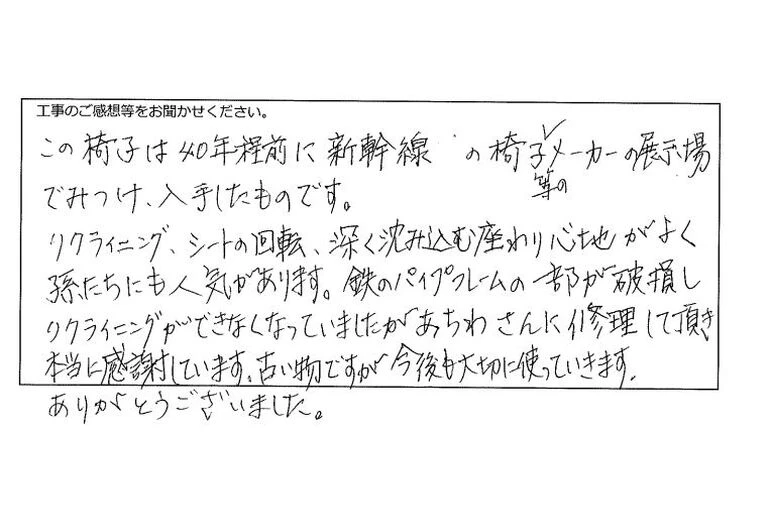 工事のご感想等をお聞かせください。
この椅子は40年程前に新幹線 の椅子等のメーカーの展示場
でみつけ、入手したものです。
リクライニング、シートの回転、深く沈み込む座わり心地がよく
孫たちにも人気があります。鉄のパイプフレームの一部が破損し
リクライニングができなくなっていましたがあちわさんに修理して頂き
本当に感謝しています。古い物ですが今後も大切に使っていきます。
ありがとうございました。